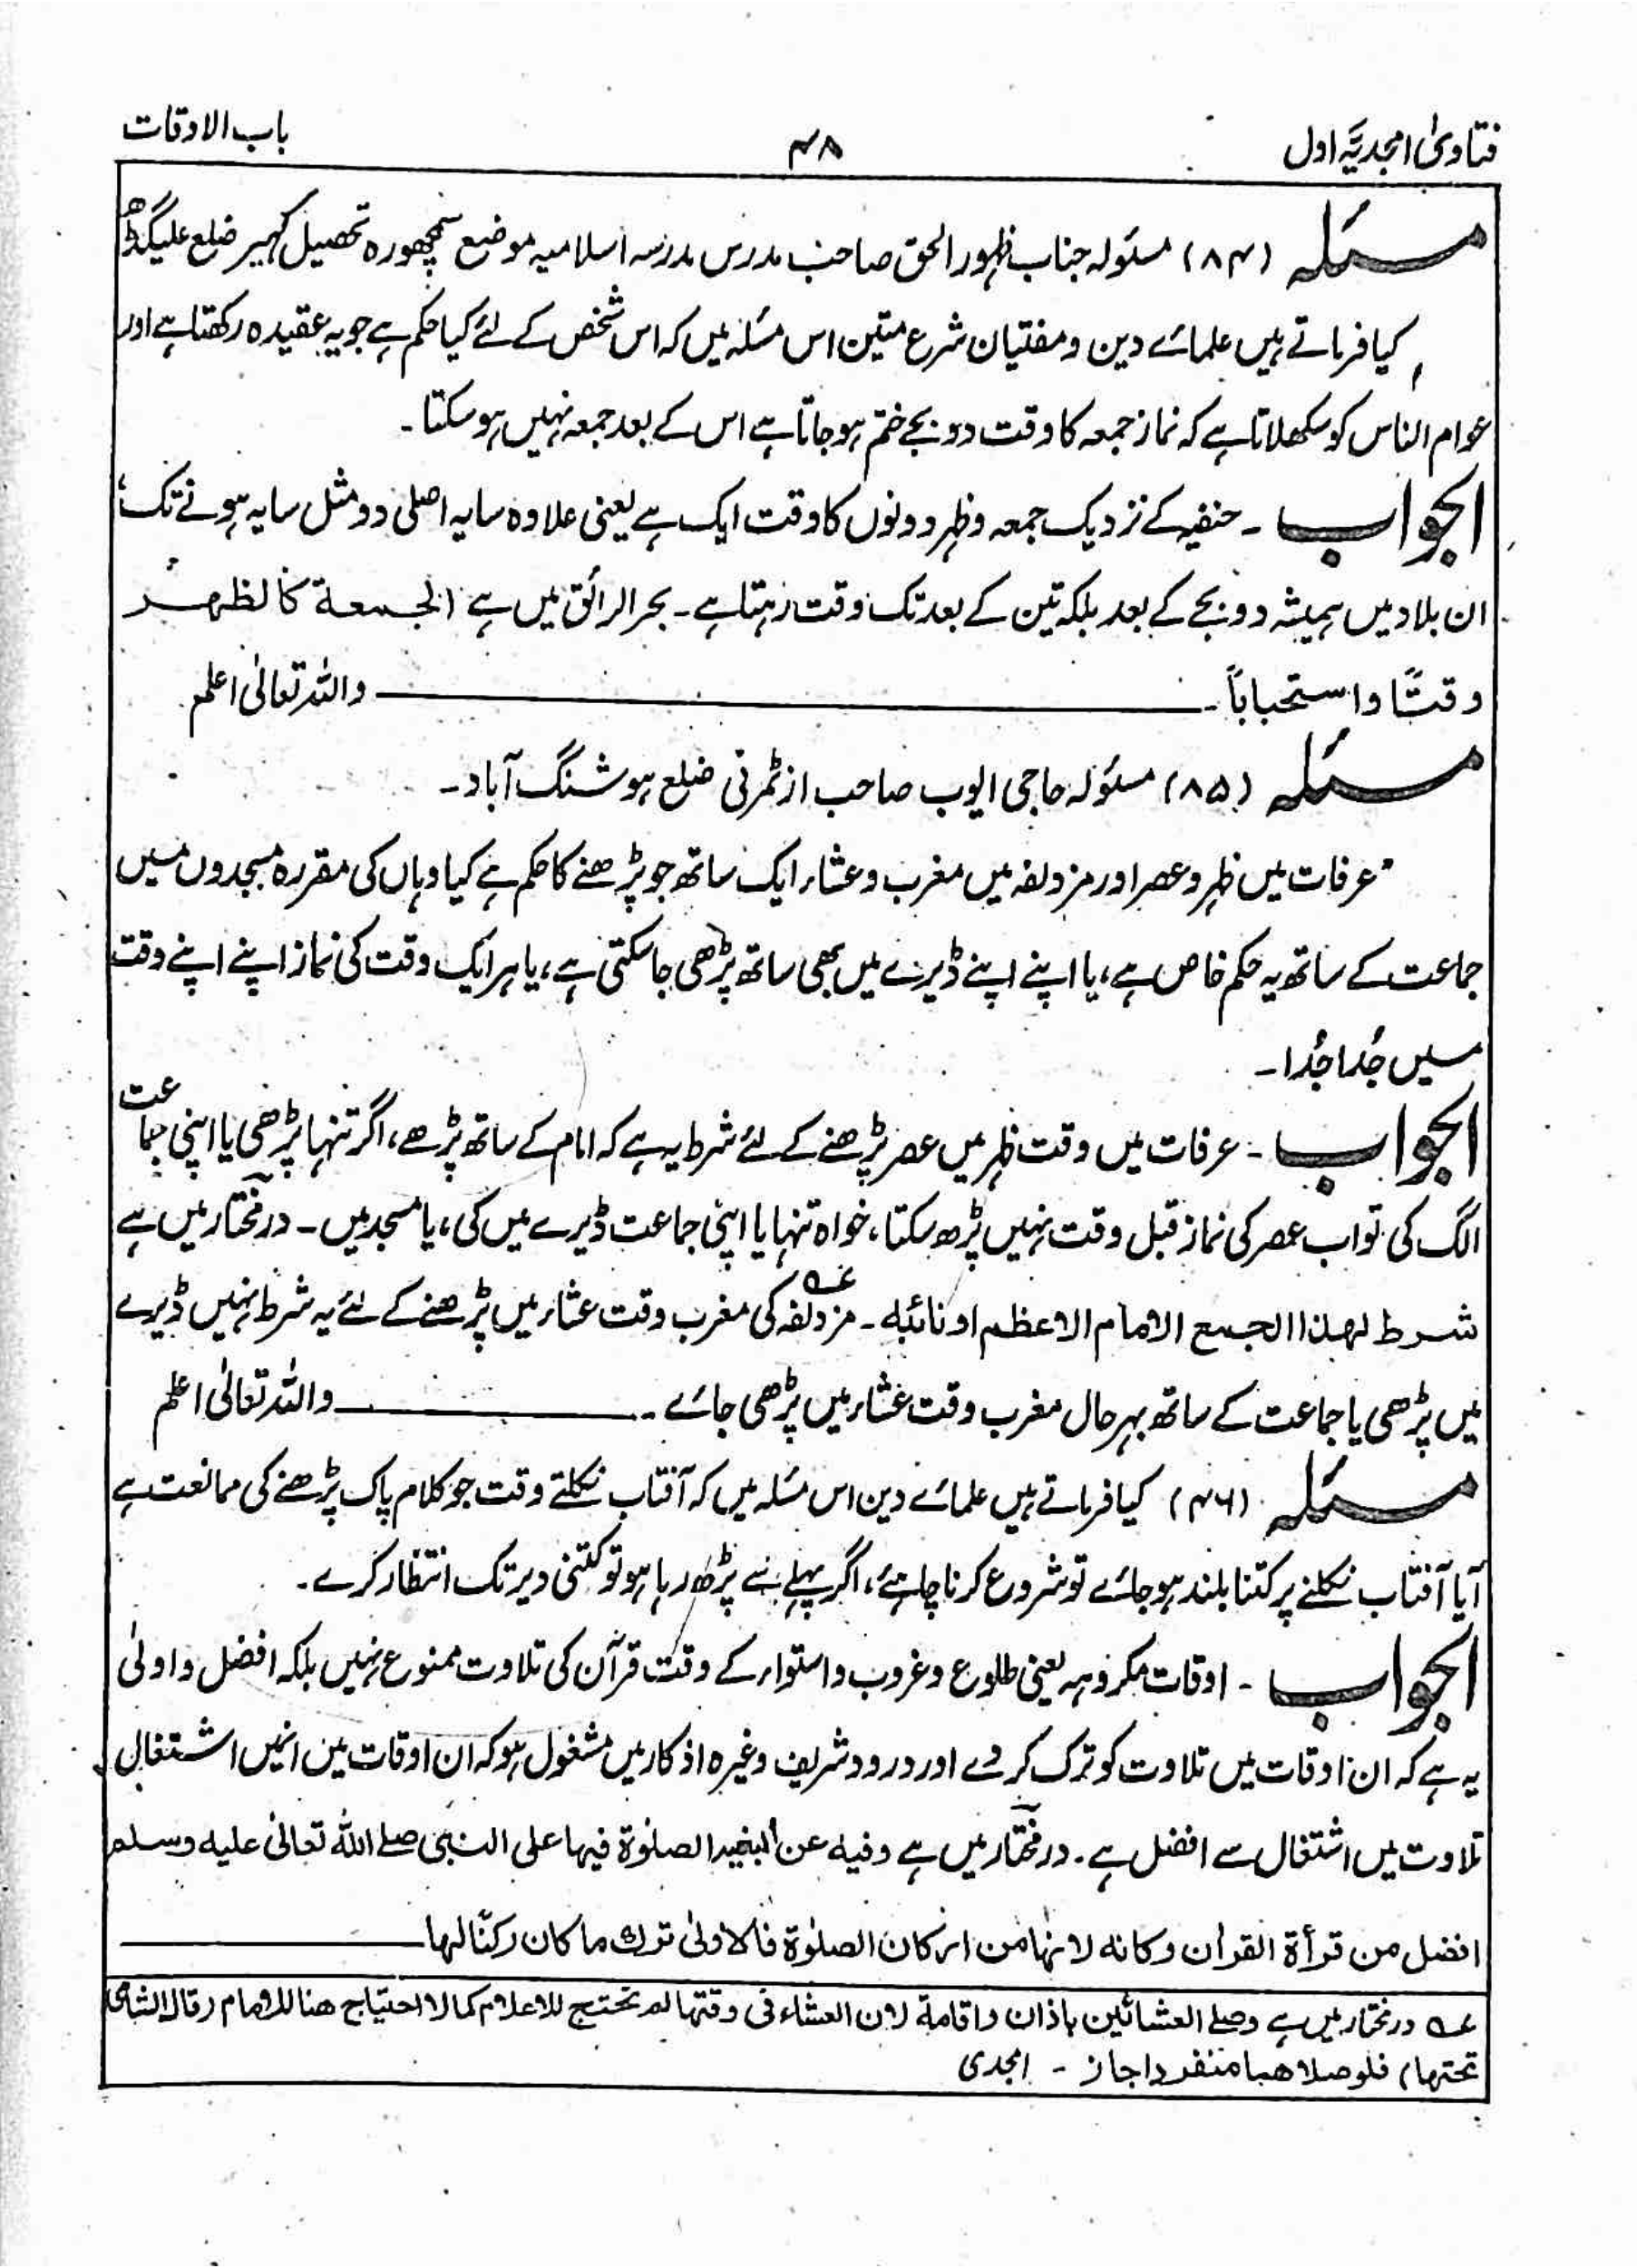 فتاویٰ امجدیہ اول
۴۸
باب الاوقات
مسئلہ (۸۴) مسئولہ جناب ظہور الحق صاحب مدرس مدرسہ اسلامیہ موضع تحصیل کہیر ضلع علیگڈھ
کیا فرماتے ہیں علمائے دین و مفتیان شرع متین اس مسئلہ میں کہ اس شخص کے لئے کیا حکم ہے جو یہ عقیدہ رکھتا ہے اور
عوام الناس کو سکھلاتا ہے کہ نماز جمعہ کا وقت دو بجے ختم ہو جاتا ہے اس کے بعد جمعہ نہیں ہو سکتا۔
الجواب ۔ حنفیہ کے نزدیک جمعہ و ظہر دونوں کا وقت ایک ہے یعنی علاوہ سایہ اصلی دو مثل سایہ ہونے تک،
ان بلاد میں ہمیشہ دو بجے کے بعد بلکہ تین کے بعد تک وقت رہتا ہے۔ بحر الرائق میں ہے الجمعة كالظهر
وقتًا واستحبابًا۔ واللہ تعالیٰ اعلم
مسئلہ (۸۵) مسئولہ حاجی ایوب صاحب از ٹمرنی ضلع ہوشنگ آباد۔
عرفات میں ظہر و عصر اور مزدلفہ میں مغرب و عشاء ایک ساتھ جو پڑھنے کا حکم ہے کیا وہاں کی مقررہ مسجدوں میں
جماعت کے ساتھ یہ حکم خاص ہے، یا اپنے اپنے ڈیرے میں بھی ساتھ پڑھی جا سکتی ہے، یا ہر ایک وقت کی نماز اپنے اپنے وقت
میں جُدا جُدا۔
الجواب ۔ عرفات میں وقت ظہر میں عصر پڑھنے کے لئے شرط یہ ہے کہ امام کے ساتھ پڑھے، اگر تنہا پڑھی یا اپنی جماعت
الگ کی تو اب عصر کی نماز قبل وقت نہیں پڑھ سکتا، خواہ تنہا یا اپنی جماعت ڈیرے میں کی، یا مسجد میں۔ درمختار میں ہے
شرط لهذا الجمع الامام الاعظم او نائبه ۔ مزدلفہ کی مغرب وقت عشاء میں پڑھنے کے لئے یہ شرط نہیں ڈیرے
میں پڑھی یا جماعت کے ساتھ بہر حال مغرب وقت عشاء میں پڑھی جائے۔ واللہ تعالیٰ اعلم
مسئلہ (۴۶) کیا فرماتے ہیں علمائے دین اس مسئلہ میں کہ آفتاب نکلتے وقت جو کلام پاک پڑھنے کی ممانعت ہے
آیا آفتاب نکلنے پر کتنا بلند ہو جائے تو شروع کرنا چاہئے، اگر پہلے سے پڑھ رہا ہو تو کتنی دیر تک انتظار کرے۔
الجواب ۔ اوقات مکروہہ یعنی طلوع و غروب و استواء کے وقت قرآن کی تلاوت ممنوع نہیں بلکہ افضل و اولیٰ
یہ ہے کہ ان اوقات میں تلاوت کو ترک کر دے اور درود شریف وغیرہ اذکار میں مشغول ہو کہ ان اوقات میں انہیں اشتغال
تلاوت میں اشتغال سے افضل ہے۔ درمختار میں ہے وفيه عن البغية الصلوٰة فيها على النبى صلے الله تعالىٰ عليه وسلم
افضل من قرأة القرأن وكانه لانها من اركان الصلوٰة فالاولىٰ ترك ما كان ركنًا لها
عہ درمختار میں ہے وصلے العشائين باذان واقامة لان العشاء فى وقتها لم تحتج للاعلام كما لا احتياج هنا للامام (قال الشامى
تحتها) فلو صلاهما منفردا جاز ۔ امجدی